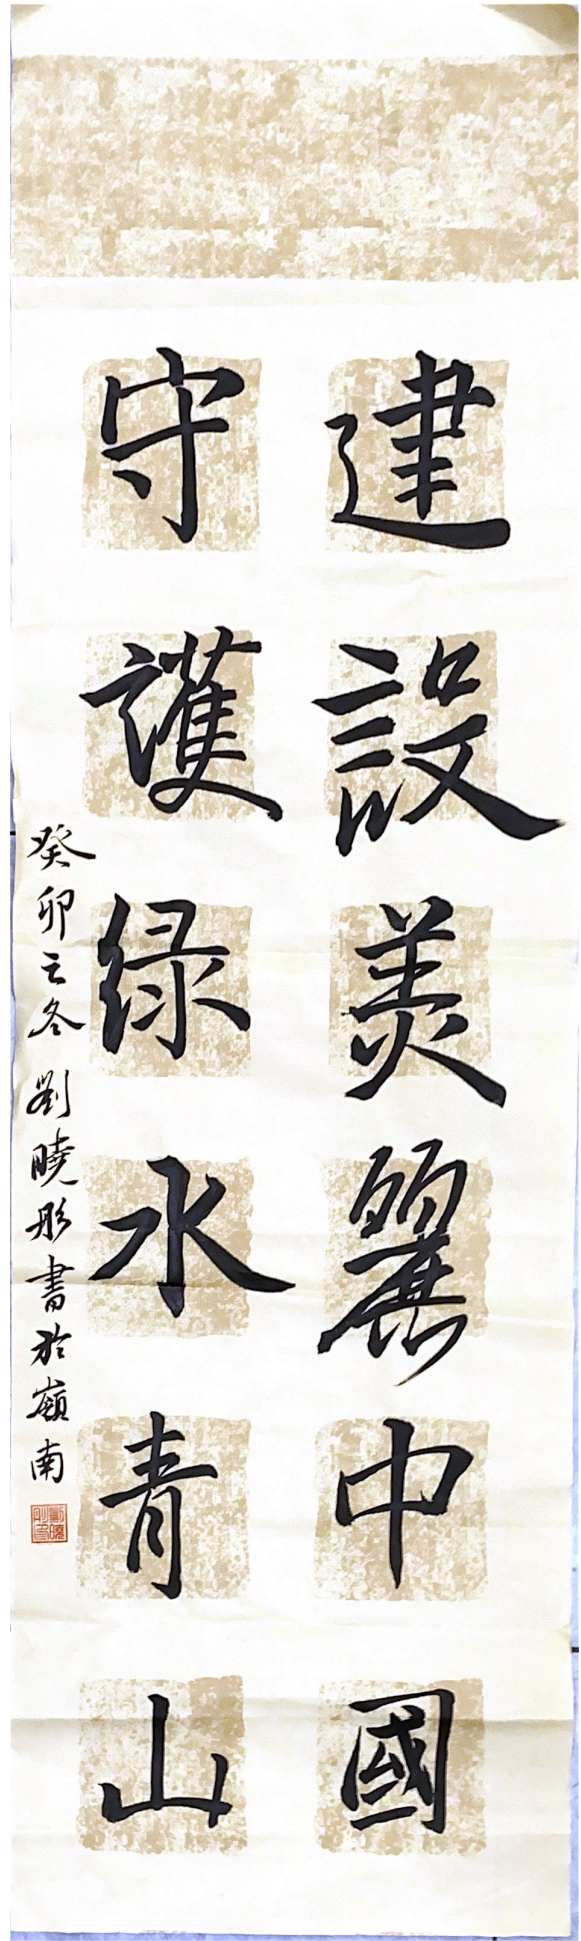 建設美麗中國
守護绿水青山
癸卯之冬劉曉彤書於嶺南